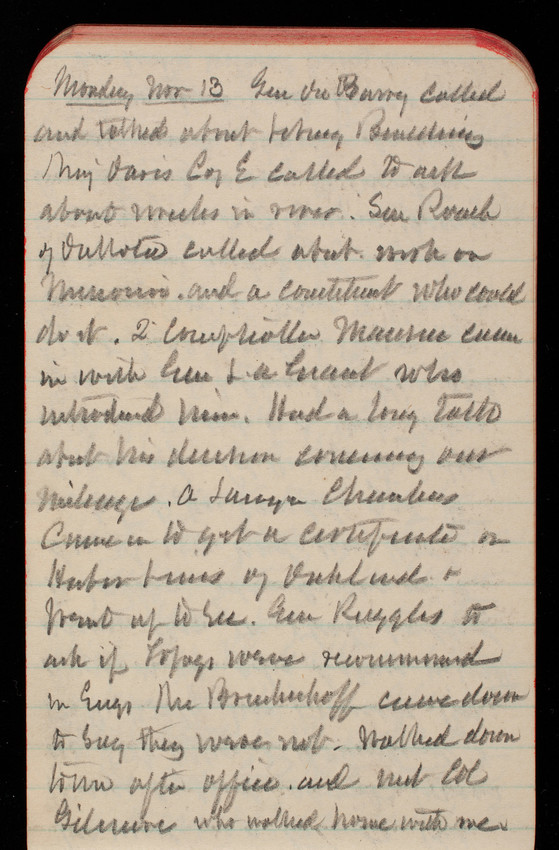 Monday Nov 13 Gen Du Barry called
and talked about Library Building
Maj Davis Coy E called to ask
about wrecks in river. Sen Roach
of Dakota called about work on
Missouri. and a constituent who could
do it. 2d Comptroller Mansur came
in with Gen L a Grant who
introduced him. Had a long talk
about his decision concerning our
mileage. A Lawyer Chambers
Came in to get a certificate on
Harbor Lines of Oakland &
Went up to See. Gen Ruggles to
ask if Topogs were recommend
in Engs Mr Brinkerhoff came down
to say they were not. Walked down
town after office. and met Col
who walked home with me